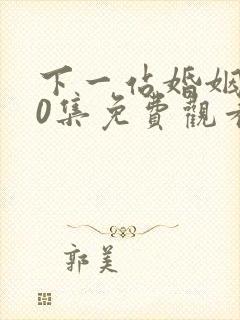 下一站婚姻
0集免費觀看
郭美